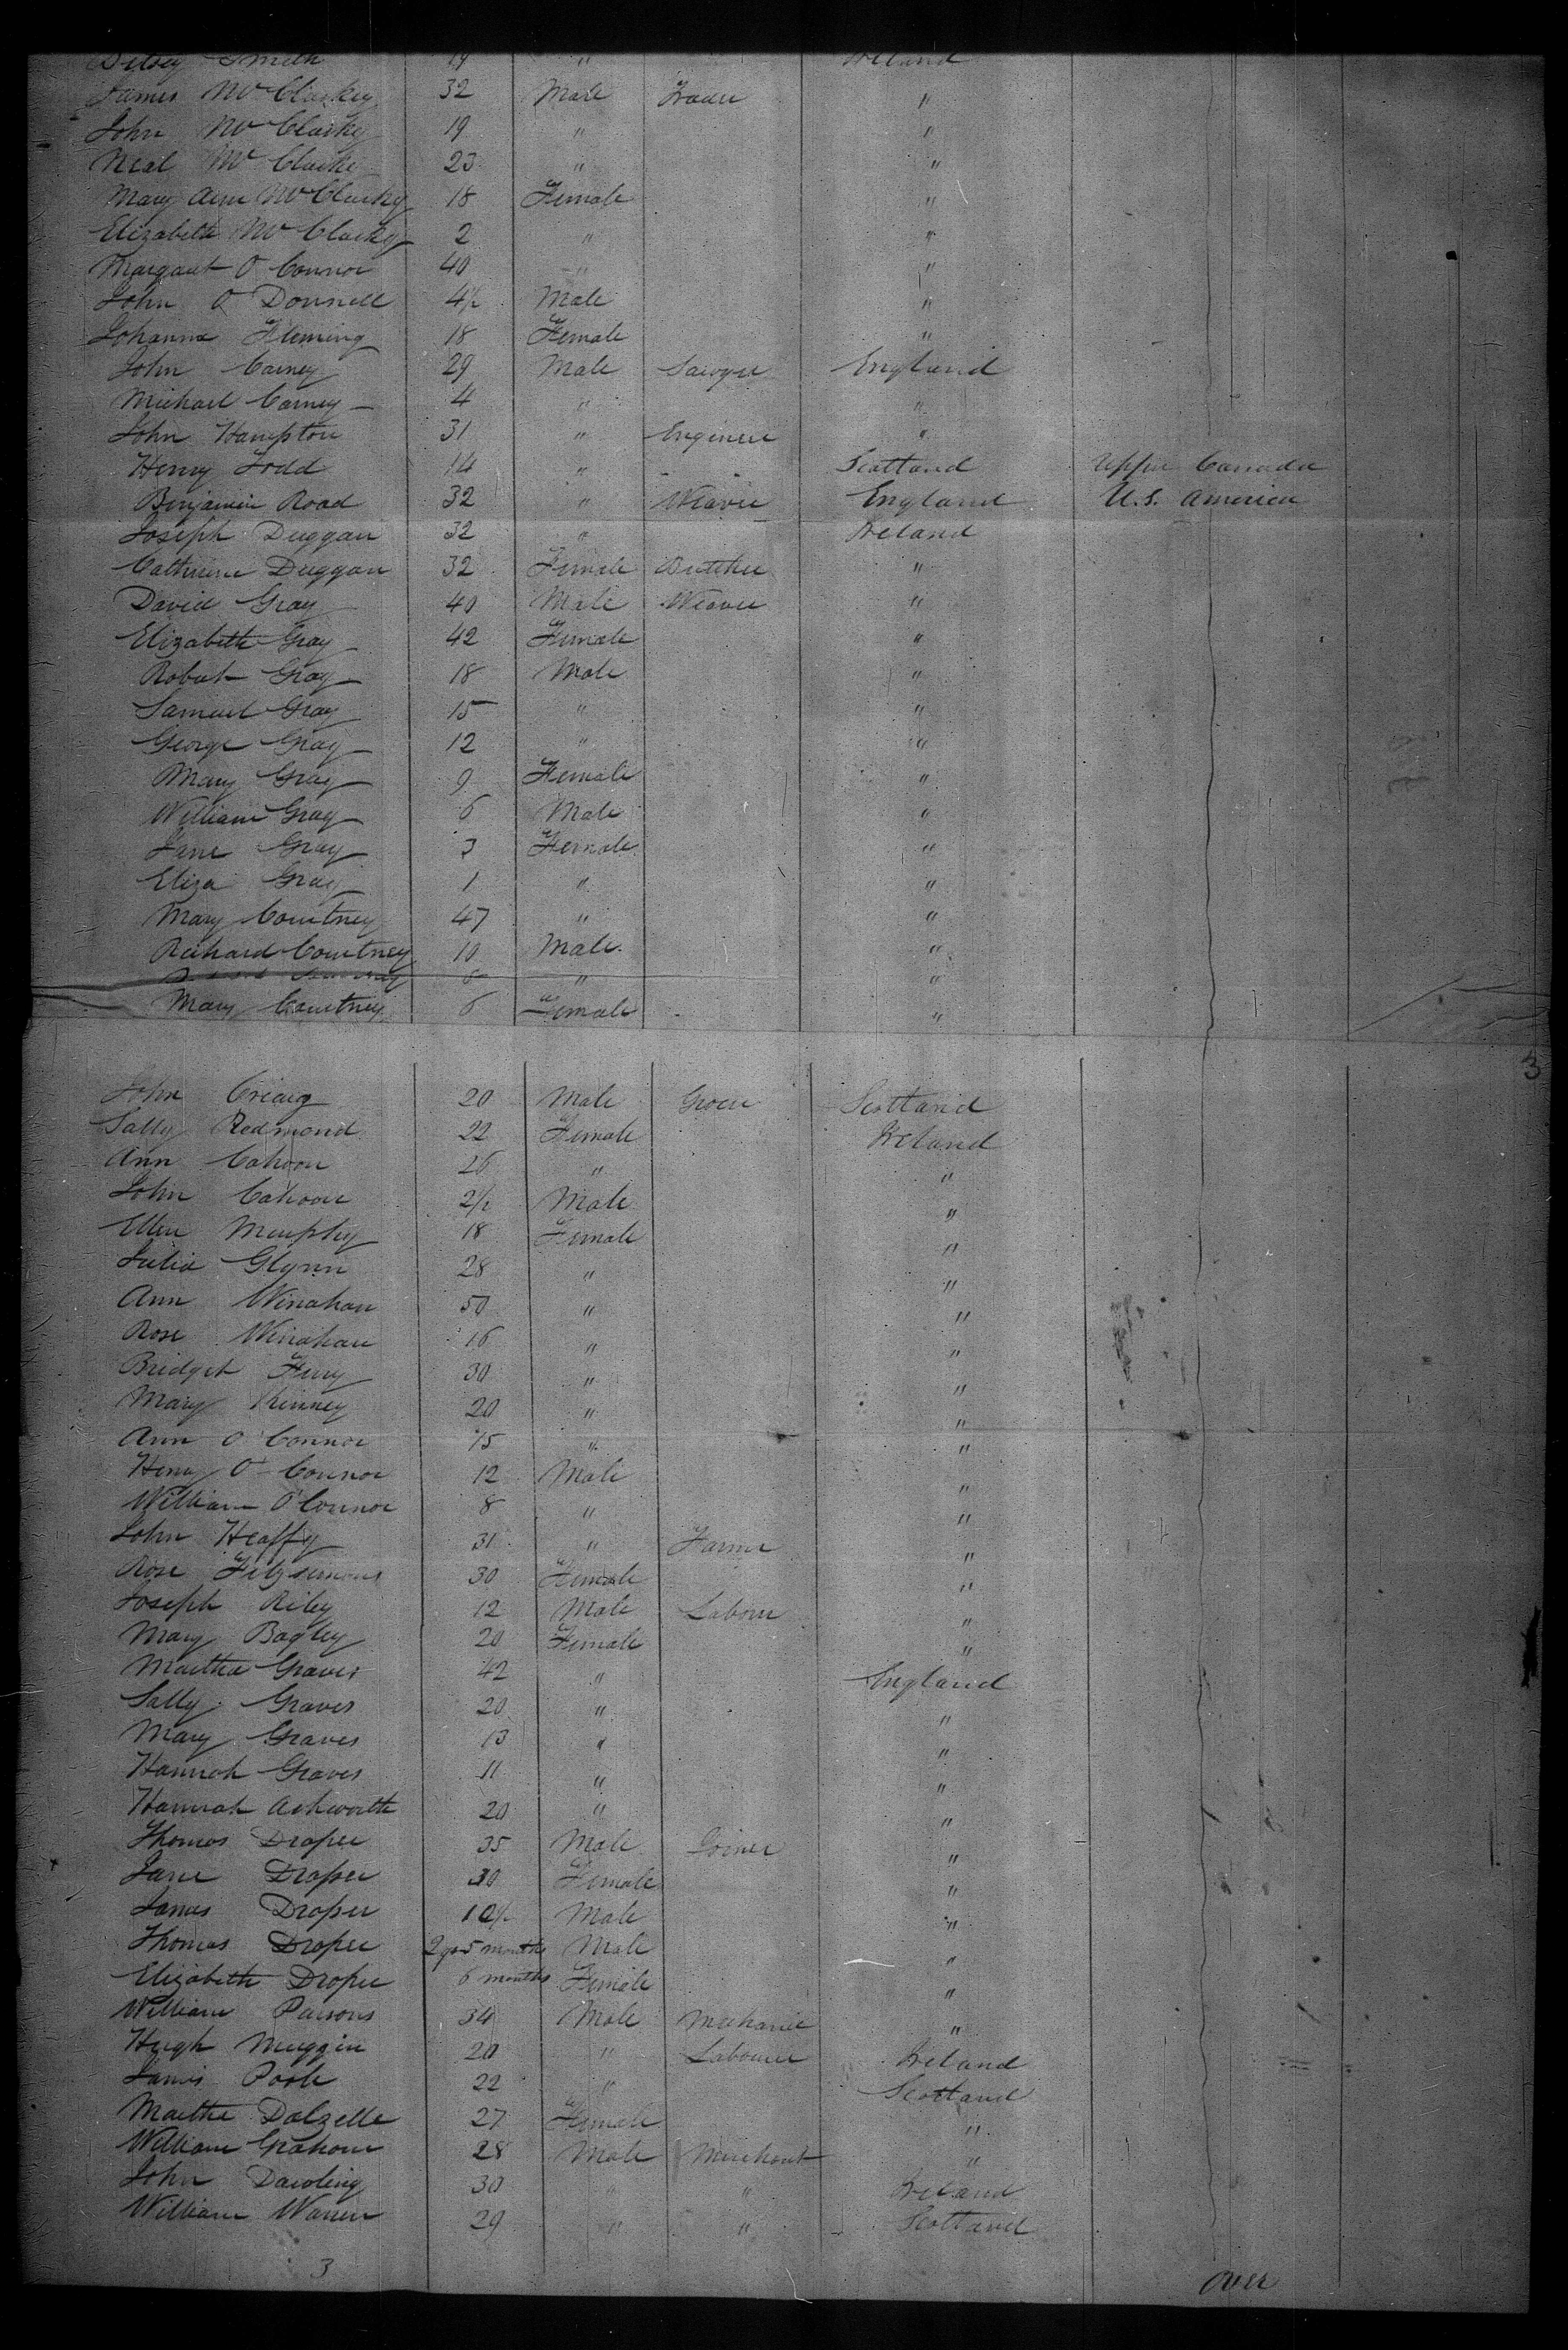 Betsey Smith 19 " Ireland
James Mc Clarkey 32 Male Trader "
John Mc Clarky 19 " "
Neal Mc Clarke 23 " "
Mary Ann Mc Clarky 18 Female "
Elizabeth Mc Clarky 2 " "
Margaret O Connor 40 " "
John O Donnell 4½ Male "
Johanna Fleming 18 Female "
John Carney 29 Male Sawyer England
Michael Carney 4 " "
John Hampton 31 " Engineer "
Henry Todd 14 " Scotland Upper Canada
Benjamin Road 32 " Weaver England U.S. America
Joseph Duggan 32 " Ireland
Catherine Duggan 32 Female Butcher "
David Gray 40 Male Weaver "
Elizabeth Gray 42 Female "
Robert Gray 18 Male "
Samuel Gray 15 " "
George Gray 12 " "
Mary Gray 9 Female "
William Gray 6 Male "
Jane Gray 3 Female "
Eliza Gray 1 " "
Mary Courtney 47 " "
Richard Courtney 10 Male "
" "
Mary Courtney 6 Female "
3
John Criaig 20 Male Grocer Scotland
Sally Redmond 22 Female Ireland
Ann Cahoon 26 " "
John Cahoon 2½ Male "
Ellen Murphy 18 Female "
Julia Glynn 28 " "
Ann Winahan 50 " "
Rose Winahan 16 " "
Bridget 30 " "
Mary Kinney 20 " "
Ann O Connor 15 " "
Henry O Connor 12 Male "
William O'Connor 8 " "
John Heaffy 31 " Farmer "
Rose Fitzsimons 30 Female "
Joseph Riley 12 Male Labour "
Mary Bagley 20 Female "
Martha Graves 42 " England
Sally Graves 20 " "
Mary Graves 13 " "
Hannah Graves 11 " "
Hannah Ashworth 20 " "
Thomas Draper 35 Male Joiner "
Jane Draper 30 Female "
James Draper 10½ Male "
Thomas Draper 2 yrs 5 months Male "
Elizabeth Draper 6 months Female "
William Parsons 34 Male Mechanic "
Hugh Muggin 20 " Labourer Ireland
James Poole 22 " Scotland
Martha Dalzelle 27 Female "
William Graham 28 Male Merchant "
John Dawling 30 " " Ireland
William Warren 29 " " Scotland
3 over